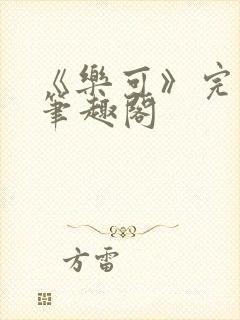 《樂可》完
筆趣閣
方雷